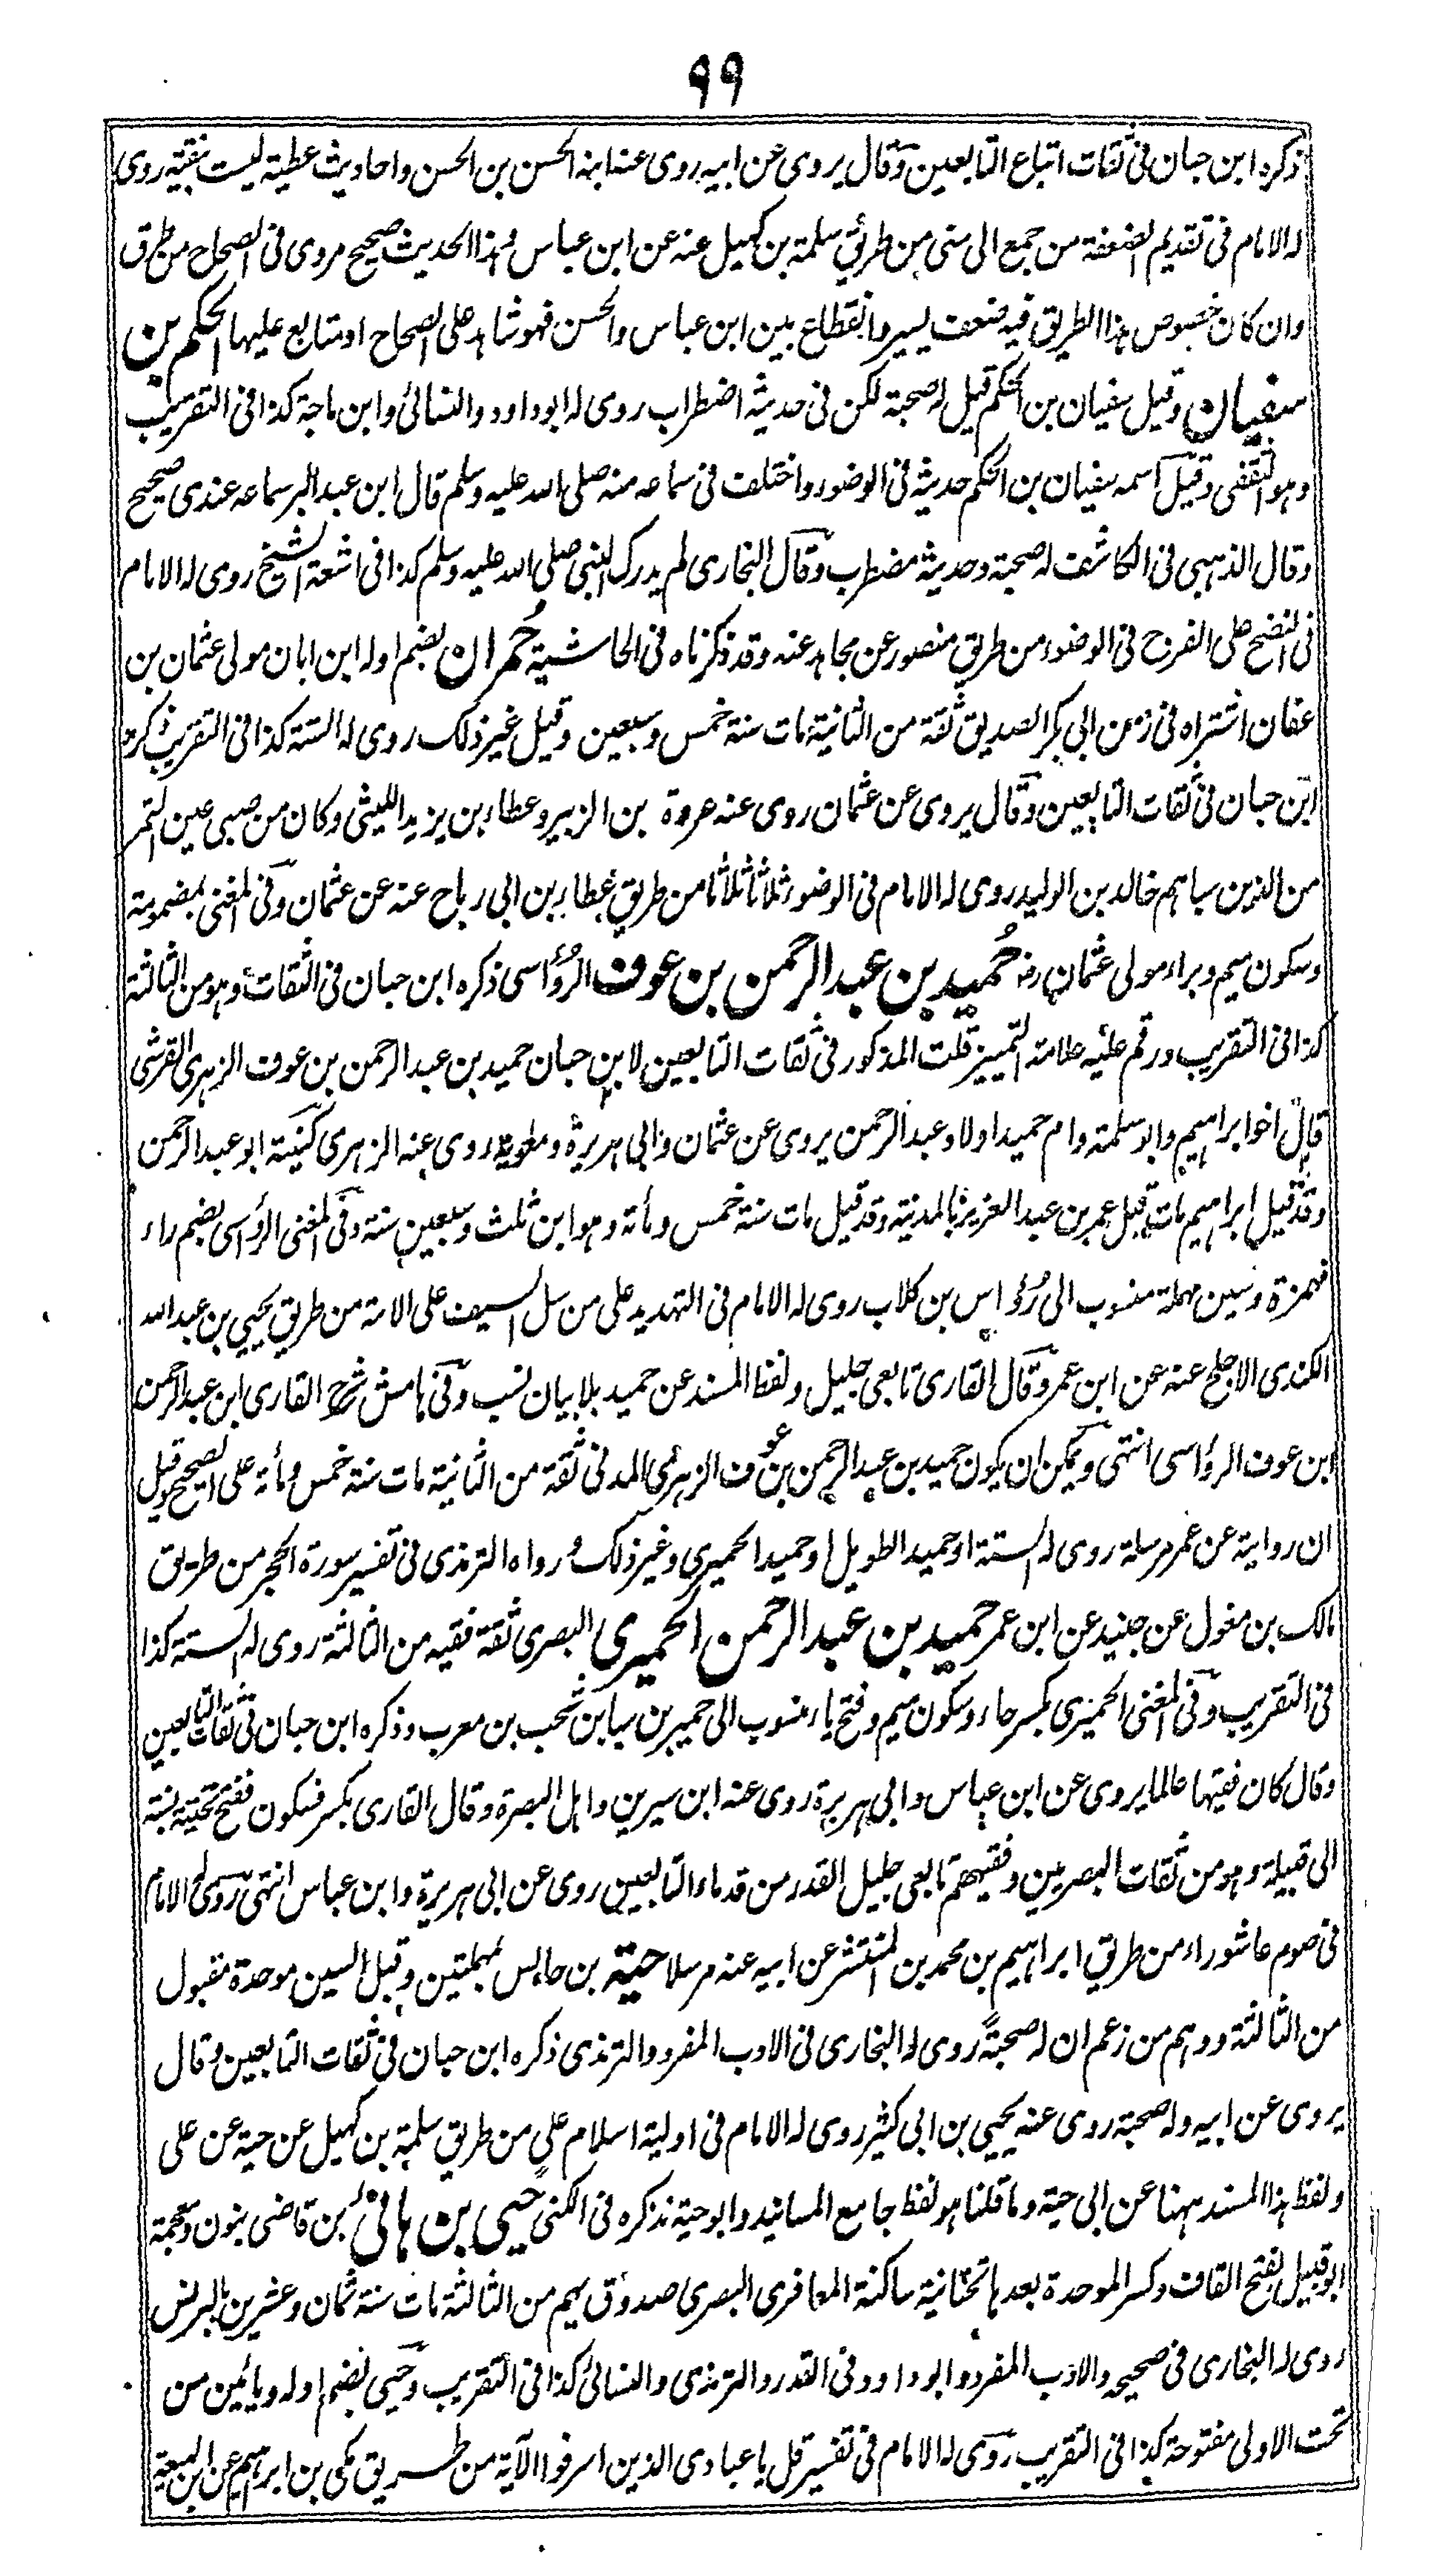 ٩٩
ذكره ابن حبان فى ثقات اتباع التابعين وقال يروى عن ابيه روى عنه ابنه الحسن بن الحسن واحاديث عطية ليست بنقية روى
له الامام فى تقديم الضعفة من جمع الى منى من طريق سلمة بن كهيل عنه عن ابن عباس وهذا الحديث صحيح مروى فى الصحاح من طرق
وان كان خصوص هذا الطريق فيه ضعف يسير وانقطاع بين ابن عباس والحسن فهو شاهد على الصحاح او متابع عليها الحكم بن
سفيان وقيل سفيان بن الحكم قيل له صحبة لكن فى حديثه اضطراب روى له ابو داود والنسائى وابن ماجة كذا فى التقريب
وهو الثقفى وقيل اسمه سفيان بن الحكم حديثه فى الوضوء واختلف فى سماعه منه صلى الله عليه وسلم قال ابن عبد البر سماعه عندى صحيح
وقال الذهبى فى الكاشف له صحبة وحديثه مضطرب وقال البخارى لم يدرك النبى صلى الله عليه وسلم كذا فى اشعة الشيخ روى له الامام
فى النضح على الفرج فى الوضوء من طريق منصور عن مجاهد عنه وقد ذكرناه فى الحاشية حُمران بضم اوله ابن ابان مولى عثمان بن
عفان اشتراه فى زمن ابى بكر الصديق ثقة من الثانية مات سنة خمس وسبعين وقيل غير ذلك روى له الستة كذا فى التقريب ذكره
ابن حبان فى ثقات التابعين وقال يروى عن عثمان روى عنه عروة بن الزبير وعطاء بن يزيد الليثى وكان من سبى عين التمر
من الذين سباهم خالد بن الوليد روى له الامام فى الوضوء ثلاثا ثلاثا من طريق عطاء بن ابى رباح عنه عن عثمان وفى المغنى بمضمومة
وسكون ميم وبراء مولى عثمان رض حُميد بن عبد الرحمن بن عوف الرؤاسى ذكره ابن حبان فى الثقات وهو من الثالثة
كذا فى التقريب ورقم عليه علامة التمييز قلت المذكور فى ثقات التابعين لابن حبان حميد بن عبد الرحمن بن عوف الزهرى القرشى
قال اخو ابراهيم وابو سلمة وام حميد اولاد عبد الرحمن يروى عن عثمان وابى هريرة ومعوية روى عنه الزهرى كنيته ابو عبد الرحمن
وقد قيل ابراهيم مات قبل عمر بن عبد العزيز بالمدينة وقد قيل مات سنة خمس ومأة وهو ابن ثلث وسبعين سنة وفى المغنى الرؤاسى بضم راء
فهمزة وسين مهملة منسوب الى رُؤاس بن كلاب روى له الامام فى التهديد على من سل السيف على الامة من طريق يحيى بن عبد الله
الكندى الاجلح عنه عن ابن عمر وقال القارى تابعى جليل ولفظ المسند عن حميد بلا بيان نسب وفى هامش شرح القارى ابن عبد الرحمن
ابن عوف الرؤاسى انتهى ويمكن ان يكون حميد بن عبد الرحمن بن عوف الزهرى المدنى ثقة من الثانية مات سنة خمس ومأة على الصحيح وقيل
ان روايته عن عمر مرسلة روى له الستة او حميد الطويل او حميد الحميرى وغير ذلك ورواه الترمذى فى تفسير سورة الحجر من طريق
مالك بن مغول عن جنيد عن ابن عمر حميد بن عبد الرحمن الحميرى البصرى ثقة فقيه من الثالثة روى له الستة كذا
فى التقريب وفى المغنى الحميرى بكسر حاء وسكون ميم وفتح ياء منسوب الى حمير بن سبا بن يشحب بن معرب وذكره ابن حبان فى ثقات التابعين
وقال كان فقيها عالما يروى عن ابن عباس وابى هريرة روى عنه ابن سيرين واهل البصرة وقال القارى بكسر فسكون ففتح تحتية نسبة
الى قبيلة وهو من ثقات البصريين وفقيههم تابعى جليل القدر من قدماء التابعين روى عن ابى هريرة وابن عباس انتهى روى له الامام
فى صوم عاشوراء من طريق ابراهيم بن محمد بن المنتشر عن ابيه عنه مرسلا حية بن حابس بمهملتين وقبل السين موحدة مقبول
من الثالثة ووهم من زعم ان له صحبة روى له البخارى فى الادب المفرد والترمذى ذكره ابن حبان فى ثقات التابعين وقال
يروى عن ابيه وله صحبة روى عنه يحيى بن ابى كثير روى له الامام فى اولية اسلام على من طريق سلمة بن كهيل عن حية عن على
ولفظ هذا المسند ههنا عن ابى حية وما قلنا هو لفظ جامع المسانيد وابو حية نذكره فى الكنى حيى بن هانئ بن قاضى بنون ومعجمة
ابو قبيل بفتح القاف وكسر الموحدة بعدها تحتانية ساكنة المعافرى البصرى صدوق يهم من الثالثة مات سنة ثمان وعشرين بالبرلس
روى له البخارى فى صحيحه والادب المفرد وابو داود فى القدر والترمذى والنسائى كذا فى التقريب وحيى بضم اوله ويائين من
تحت الاولى مفتوحة كذا فى التقريب روى له الامام فى تفسير قل يا عبادى الذين اسرفوا الآية من طريق مكى بن ابرهيم عن ابن لهيعة